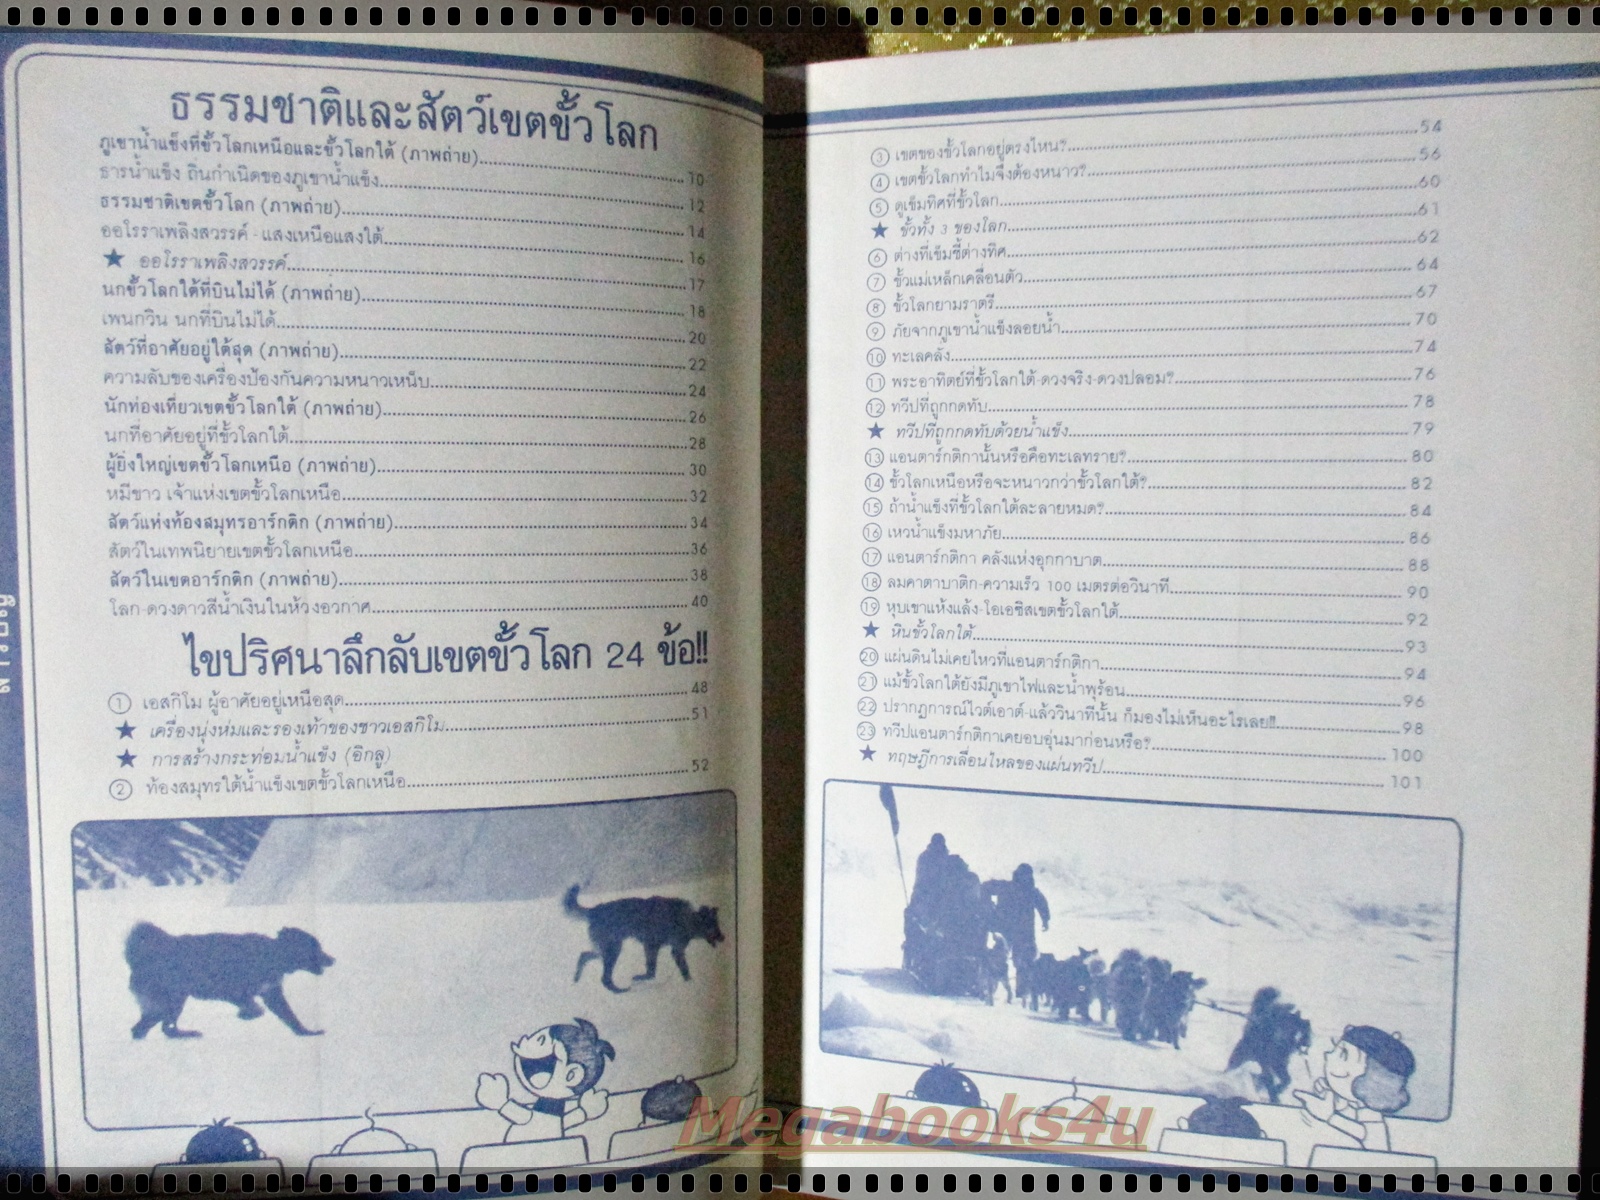 ธรรมชาติและสัตว์เขตขั้วโลก
ภูเขาน้ำแข็งที่ขั้วโลกเหนือและขั้วโลกใต้ (ภาพถ่าย)..........10
ธารน้ำแข็ง ถิ่นกำเนิดของภูเขาน้ำแข็ง..........12
ธรรมชาติเขตขั้วโลก (ภาพถ่าย)..........14
ออโรราเพลิงสวรรค์-แสงเหนือแสงใต้..........16
★ ออโรราเพลิงสวรรค์..........17
นกขั้วโลกใต้ที่บินไม่ได้ (ภาพถ่าย)..........18
เพนกวิน นกที่บินไม่ได้..........20
สัตว์ที่อาศัยอยู่ใต้สุด (ภาพถ่าย)..........22
ความลับของเครื่องป้องกันความหนาวเหน็บ..........24
นักท่องเที่ยวเขตขั้วโลกใต้ (ภาพถ่าย)..........26
นกที่อาศัยอยู่ที่ขั้วโลกใต้..........28
ผู้ยิ่งใหญ่เขตขั้วโลกเหนือ (ภาพถ่าย)..........30
หมีขาว เจ้าแห่งเขตขั้วโลกเหนือ..........32
สัตว์แห่งท้องสมุทรอาร์กติก (ภาพถ่าย)..........34
สัตว์ในเทพนิยายเขตขั้วโลกเหนือ..........36
สัตว์ในเขตอาร์กติก (ภาพถ่าย)..........38
โลก-ดวงดาวสีน้ำเงินในห้วงอวกาศ..........40
ไขปริศนาลึกลับเขตขั้วโลก 24 ข้อ!!
① เอสกิโม ผู้อาศัยอยู่เหนือสุด..........48
★ เครื่องนุ่งห่มและรองเท้าของชาวเอสกิโม..........51
★ การสร้างกระท่อมน้ำแข็ง (อิกลู)
② ท้องสมุทรใต้น้ำแข็งเขตขั้วโลกเหนือ..........52
③ เขตของขั้วโลกอยู่ตรงไหน?..........54
④ เขตขั้วโลกทำไมจึงต้องหนาว?..........56
⑤ ดูเข็มทิศที่ขั้วโลก..........60
★ ขั้วทั้ง 3 ของโลก..........61
⑥ ต่างที่เข็มชี้ต่างทิศ..........62
⑦ ขั้วแม่เหล็กเคลื่อนตัว..........64
⑧ ขั้วโลกยามราตรี..........67
⑨ ภัยจากภูเขาน้ำแข็งลอยน้ำ..........70
⑩ ทะเลคลั่ง..........74
⑪ พระอาทิตย์ที่ขั้วโลกใต้-ดวงจริง-ดวงปลอม?..........76
⑫ ทวีปที่ถูกกดทับ..........78
★ ทวีปที่ถูกกดทับด้วยน้ำแข็ง..........79
⑬ แอนตาร์กติกานั้นหรือคือทะเลทราย?..........80
⑭ ขั้วโลกเหนือหรือจะหนาวกว่าขั้วโลกใต้?..........82
⑮ ถ้าน้ำแข็งที่ขั้วโลกใต้ละลายหมด?..........84
⑯ เหวน้ำแข็งมหาภัย..........86
⑰ แอนตาร์กติกา คลังแห่งอุกกาบาต..........88
⑱ ลมคาตาบาติก-ความเร็ว 100 เมตรต่อวินาที..........90
⑲ หุบเขาแห้งแล้ง-โอเอซิสเขตขั้วโลกใต้..........92
★ หินขั้วโลกใต้..........93
⑳ แผ่นดินไม่เคยไหวที่แอนตาร์กติกา..........94
㉑ แม้ขั้วโลกใต้ยังมีภูเขาไฟและน้ำพุร้อน..........96
㉒ ปรากฏการณ์ไวต์เอาต์-แล้ววินาทีนั้น ก็มองไม่เห็นอะไรเลย!!..........98
㉓ ทวีปแอนตาร์กติกาเคยอบอุ่นมาก่อนหรือ?..........100
★ ทฤษฎีการเลื่อนไหลของแผ่นทวีป..........101
Megabooks4u